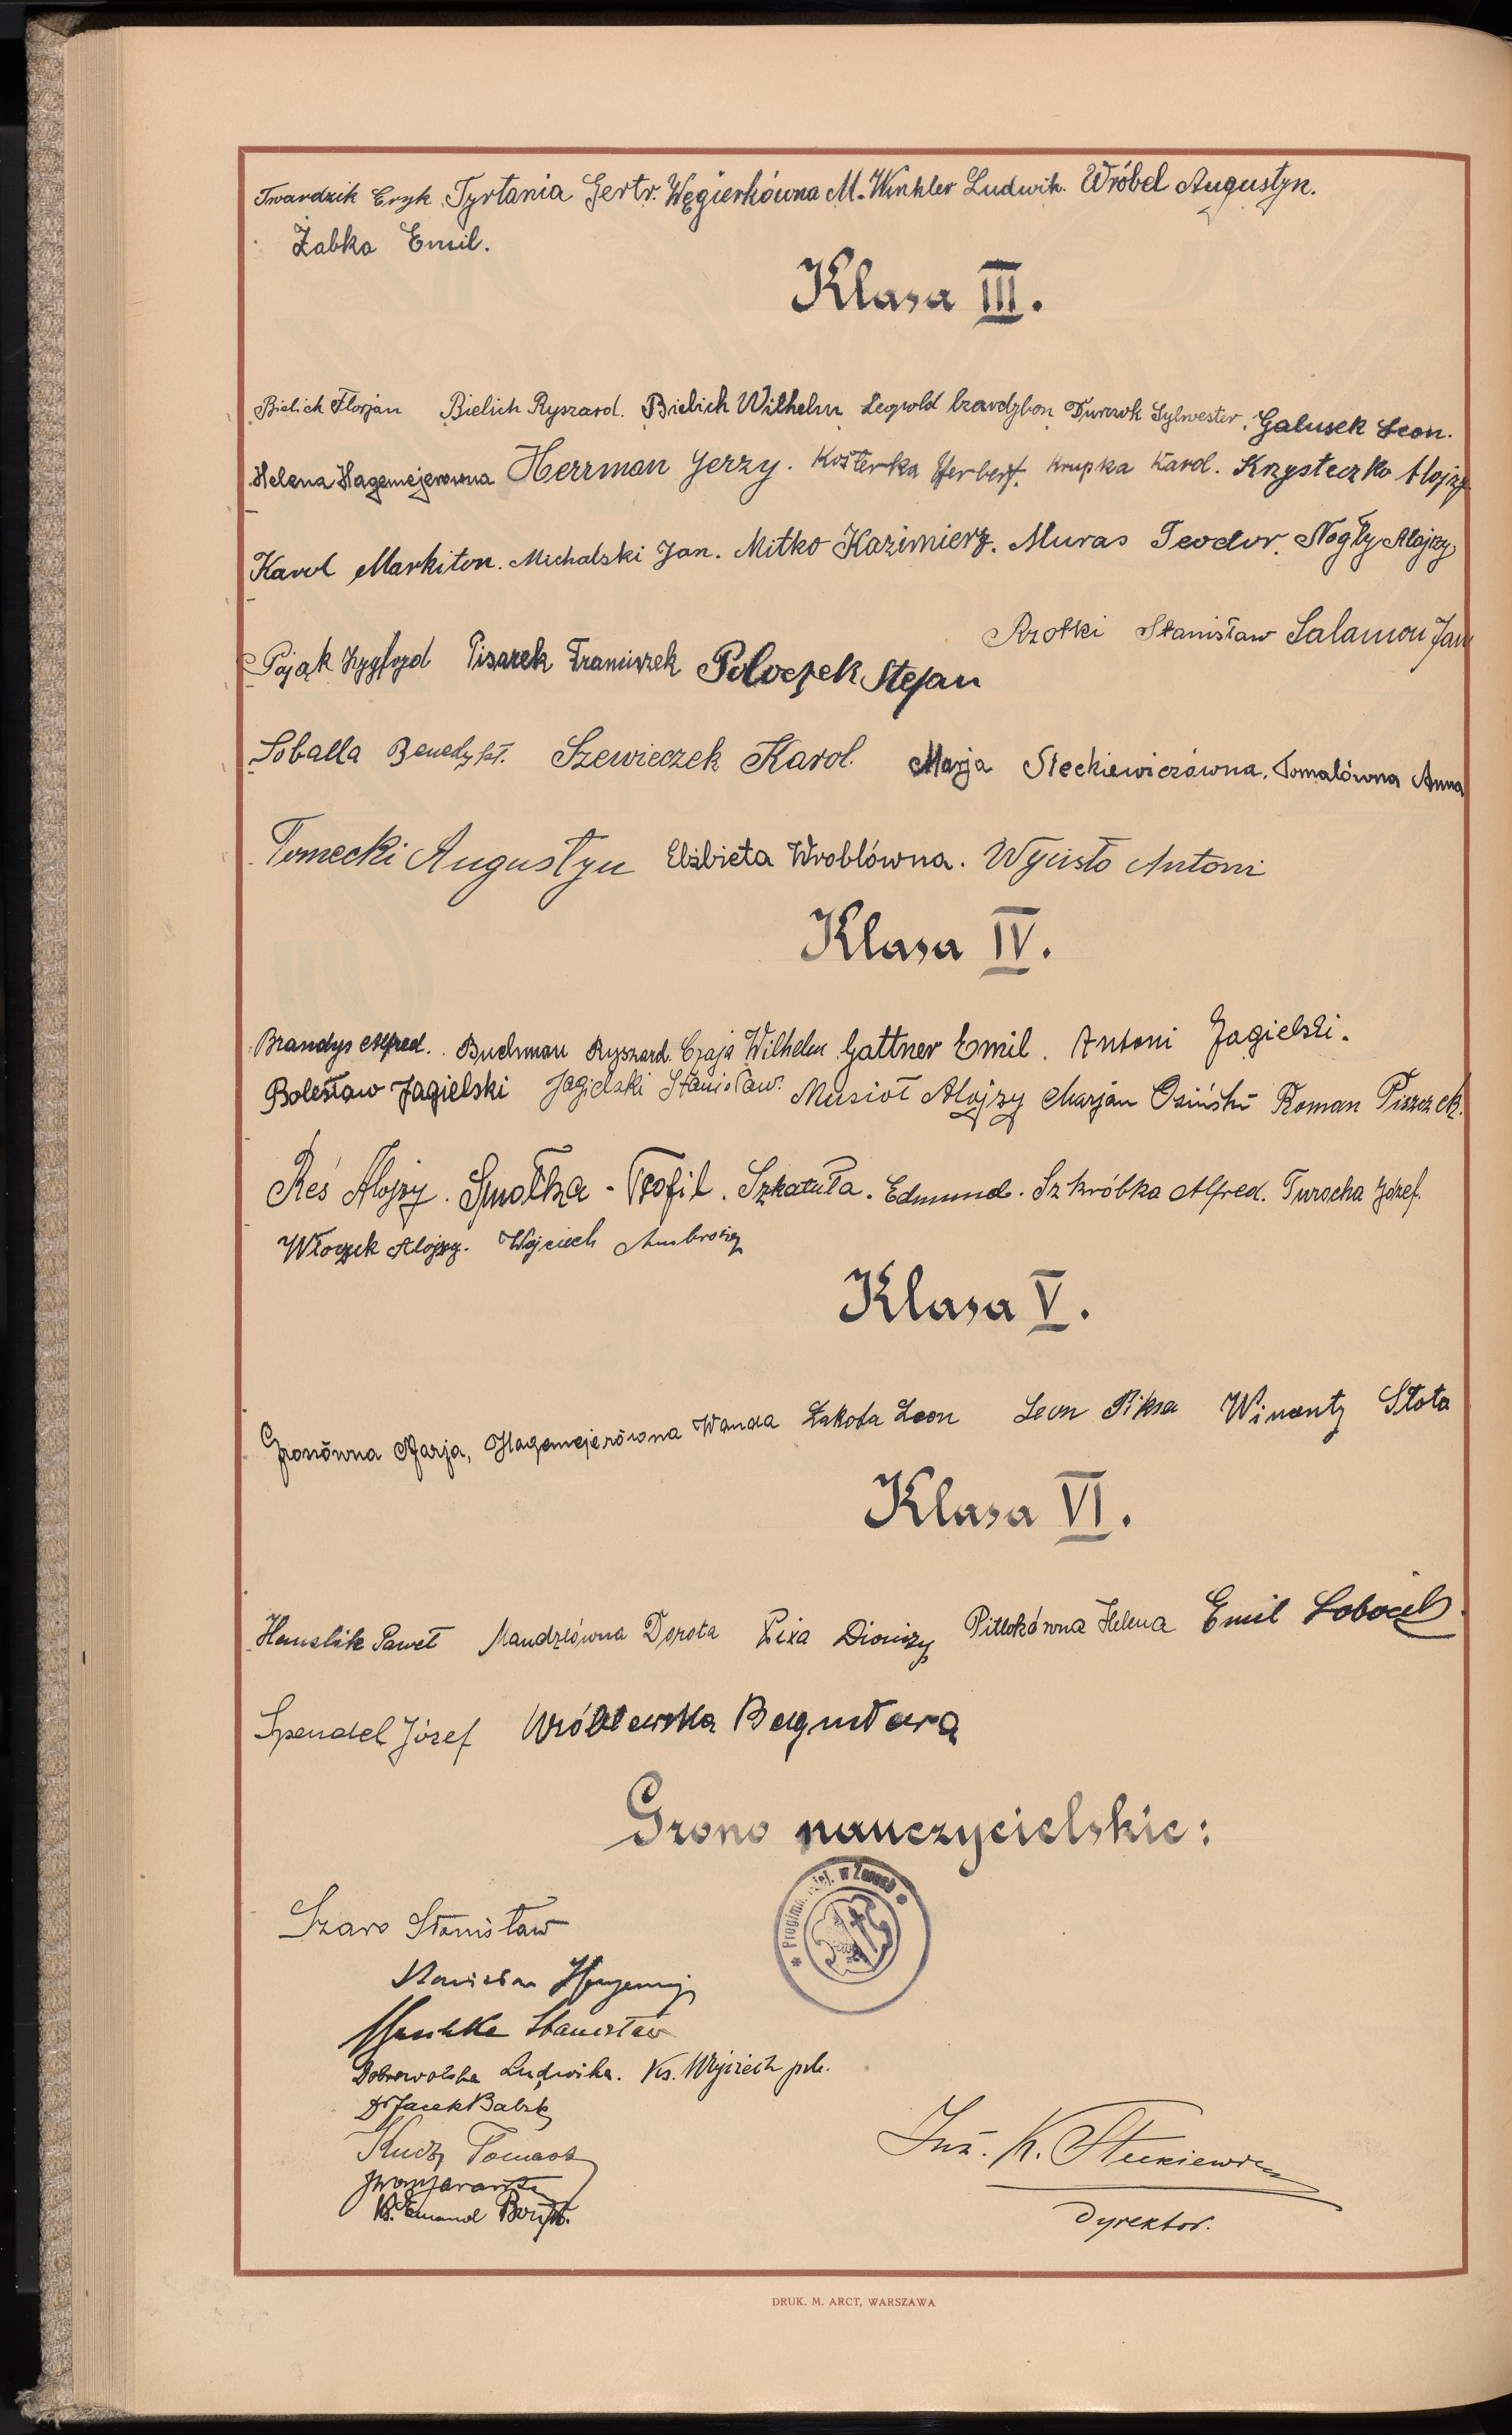 Twardzik Eryk Tyrtania Gertr. Węgierkówna M. Winkler Ludwik. Wróbel Augustyn.
Żabka Emil.
Klasa III.
Bielich Florjan Bielich Ryszard. Bielich Wilhelm Leopold Czardybon Durczok Sylwester. Galusek Leon.
Helena Hagemejerowna Herrman Jerzy. Kosterka Herbert. Krupka Karol. Krzysteczko Alojzy
Karol Markiton. Michalski Jan. Mitko Kazimierz. Muras Teodor. Nogły Alojzy
Rzotki Stanisław Salamon Jan
Pająk Zygfryd Pisarek Franciszek Poloczek Stefan
Soballa Benedykt. Szewieczek Karol. Marja Steckiewiczówna. Tomalówna Anna
Tomecki Augustyn Elżbieta Wroblówna. Wyisło Antoni
Klasa IV.
Brandys Alfred. Buchman Ryszard. Czaja Wilhelm Gattner Emil. Antoni Jagielski.
Bolesław Jagielski Jagielski Stanisław. Musioł Alojzy Marjan Osiński Roman Piszczek.
Reś Alojzy. Smołka - Teofil. Szkatuła. Edmund. Szkróbka Alfred. Turocha Józef.
Włoczek Alojzy. Wojciech Ambroży
Klasa V.
Gronówna Marja, Hagemejerówna Wanda Łakota Leon Leon Piksa Winenty Słota
Klasa VI.
Hanslik Paweł Mandzlówna Dorota Pixa Dionizy Pitlokówna Helena Emil Sobocik.
Spendel Józef Wróblewska Bogusława
Grono nauczycielskie:
Szaro Stanisław
* Progimn. miej. w Żorach *
Stanisław
Stanisław
Dobrowolska Ludwika. Ks. Wojciech
Dr Jacek Balik
Kudz Tomasz
Ks. Emanuel
Inż. K. Steckiewicz
Dyrektor.
DRUK. M. ARCT, WARSZAWA